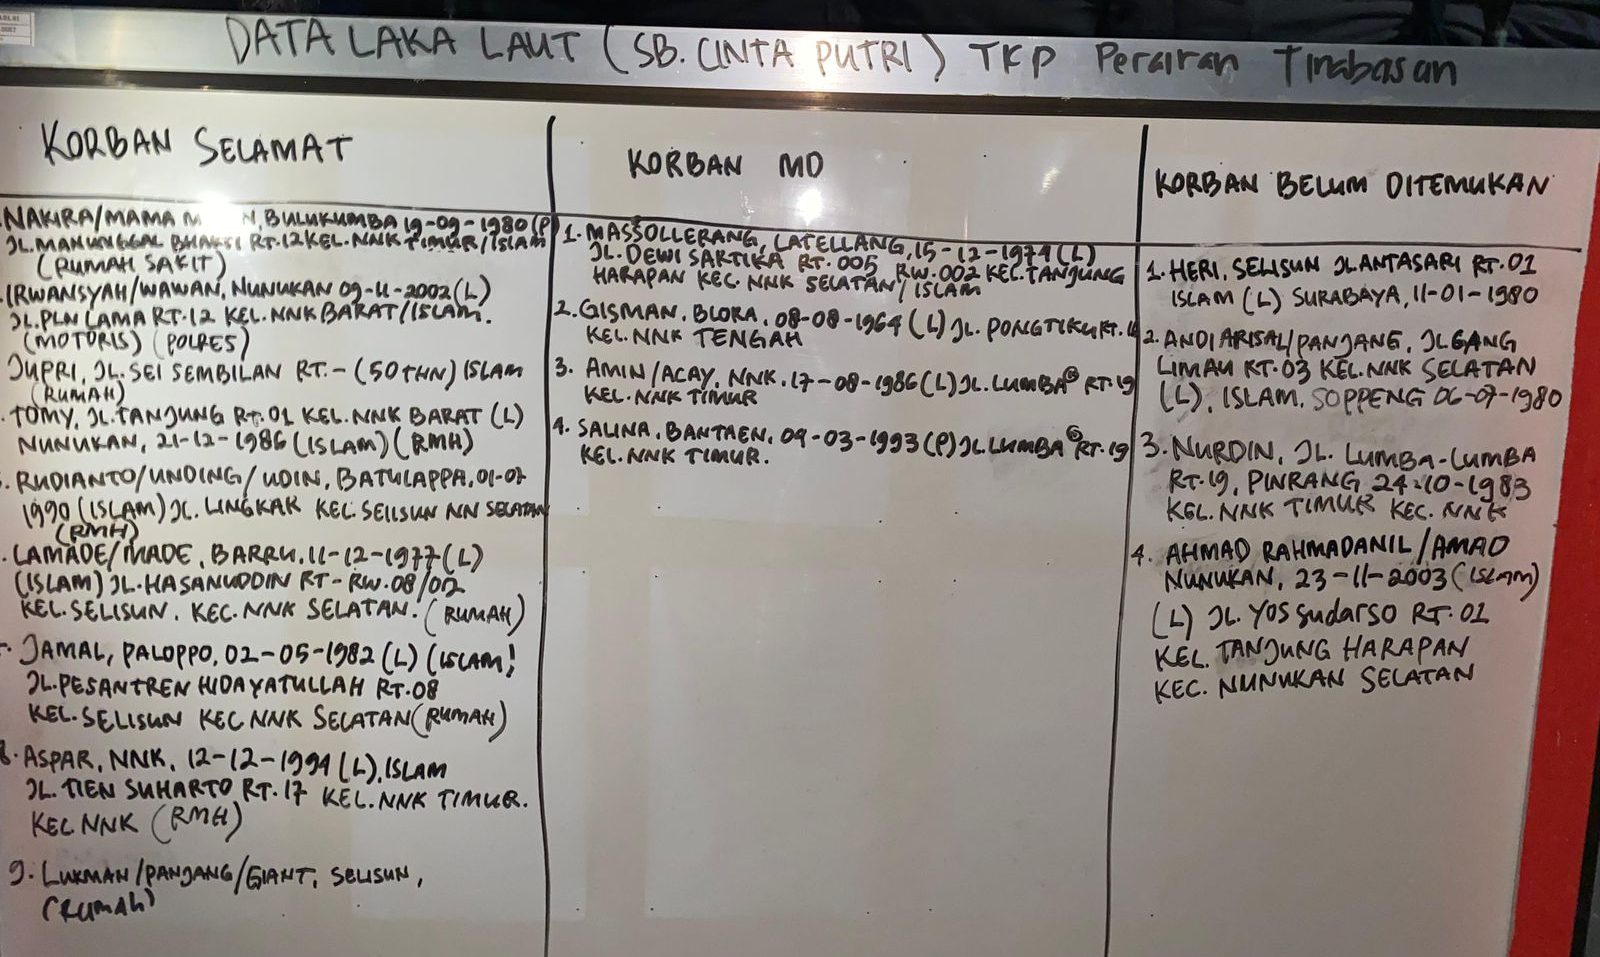 DATA LAKA LAUT (SB. CINTA PUTRI) TKP Perairan Tinabasan
KORBAN SELAMAT
NAKIRA/MAMA M N, BULUKUMBA 19-09-1980 (P)
JL. MANUNGGAL BHAKTI RT.12 KEL. NNK TIMUR/ISLAM
(RUMAH SAKIT)
IRWANSYAH/WAWAN, NUNUKAN 09-11-2002 (L)
JL. PLN LAMA RT.12 KEL. NNK BARAT/ISLAM.
(MOTORIS) (POLRES)
JUPRI, JL. SEI SEMBILAN RT.- (50 THN) ISLAM
(RUMAH)
TOMY, JL. TANJUNG RT.01 KEL. NNK BARAT (L)
NUNUKAN, 21-12-1986 (ISLAM) (RMH)
RUDIANTO/UNDING/UDIN, BATULAPPA, 01-07
1990 (ISLAM) JL. LINGKAR KEL. SELISUN NN SELATAN
(RMH)
LAMADE/MADE, BARRU, 11-12-1977 (L)
(ISLAM) JL. HASANUDDIN RT-RW.08/02
KEL. SELISUN. KEC. NNK SELATAN. (RUMAH)
JAMAL, PALOPPO, 02-05-1982 (L) (ISLAM)
JL. PESANTREN HIDAYATULLAH RT.08
KEL. SELISUN KEC NNK SELATAN (RUMAH)
8. ASPAR, NNK, 12-12-1994 (L), ISLAM
JL. TIEN SUHARTO RT.17 KEL. NNK TIMUR.
KEC NNK (RMH)
9. LUKMAN/PANJANG/GIANT, SELISUN,
(RUMAH)
KORBAN MD
1. MASSOLLERANG, LATELLANG, 15-12-1974 (L)
JL. DEWI SARTIKA RT. 005 RW. 002 KEL. TANJUNG
HARAPAN KEC. NNK SELATAN/ISLAM
2. GISMAN, BLORA, 08-08-1964 (L) JL. PONGTIKU RT.
KEL. NNK TENGAH
3. AMIN/ACAY, NNK, 17-08-1986 (L) JL. LUMBA RT.19
KEL. NNK TIMUR
4. SALINA, BANTAEN, 09-03-1993 (P) JL LUMBA RT.19
KEL. NNK TIMUR.
KORBAN BELUM DITEMUKAN
1. HERI, SELISUN JL ANTASARI RT.01
ISLAM (L) SURABAYA, 11-01-1980
2. ANDI ARISAL/PANJANG, JL GANG
LIMAU RT.03 KEL. NNK SELATAN
(L), ISLAM, SOPPENG 06-07-1980
3. NURDIN, JL. LUMBA-LUMBA
RT.19, PINRANG 24-10-1983
KEL. NNK TIMUR KEC. NNK
4. AHMAD RAHMADANIL/AMAD
NUNUKAN, 23-11-2003 (ISLAM)
(L) JL. YOS SUdARSO RT.01
KEL. TANJUNG HARAPAN
KEC. NUNUKAN SELATAN